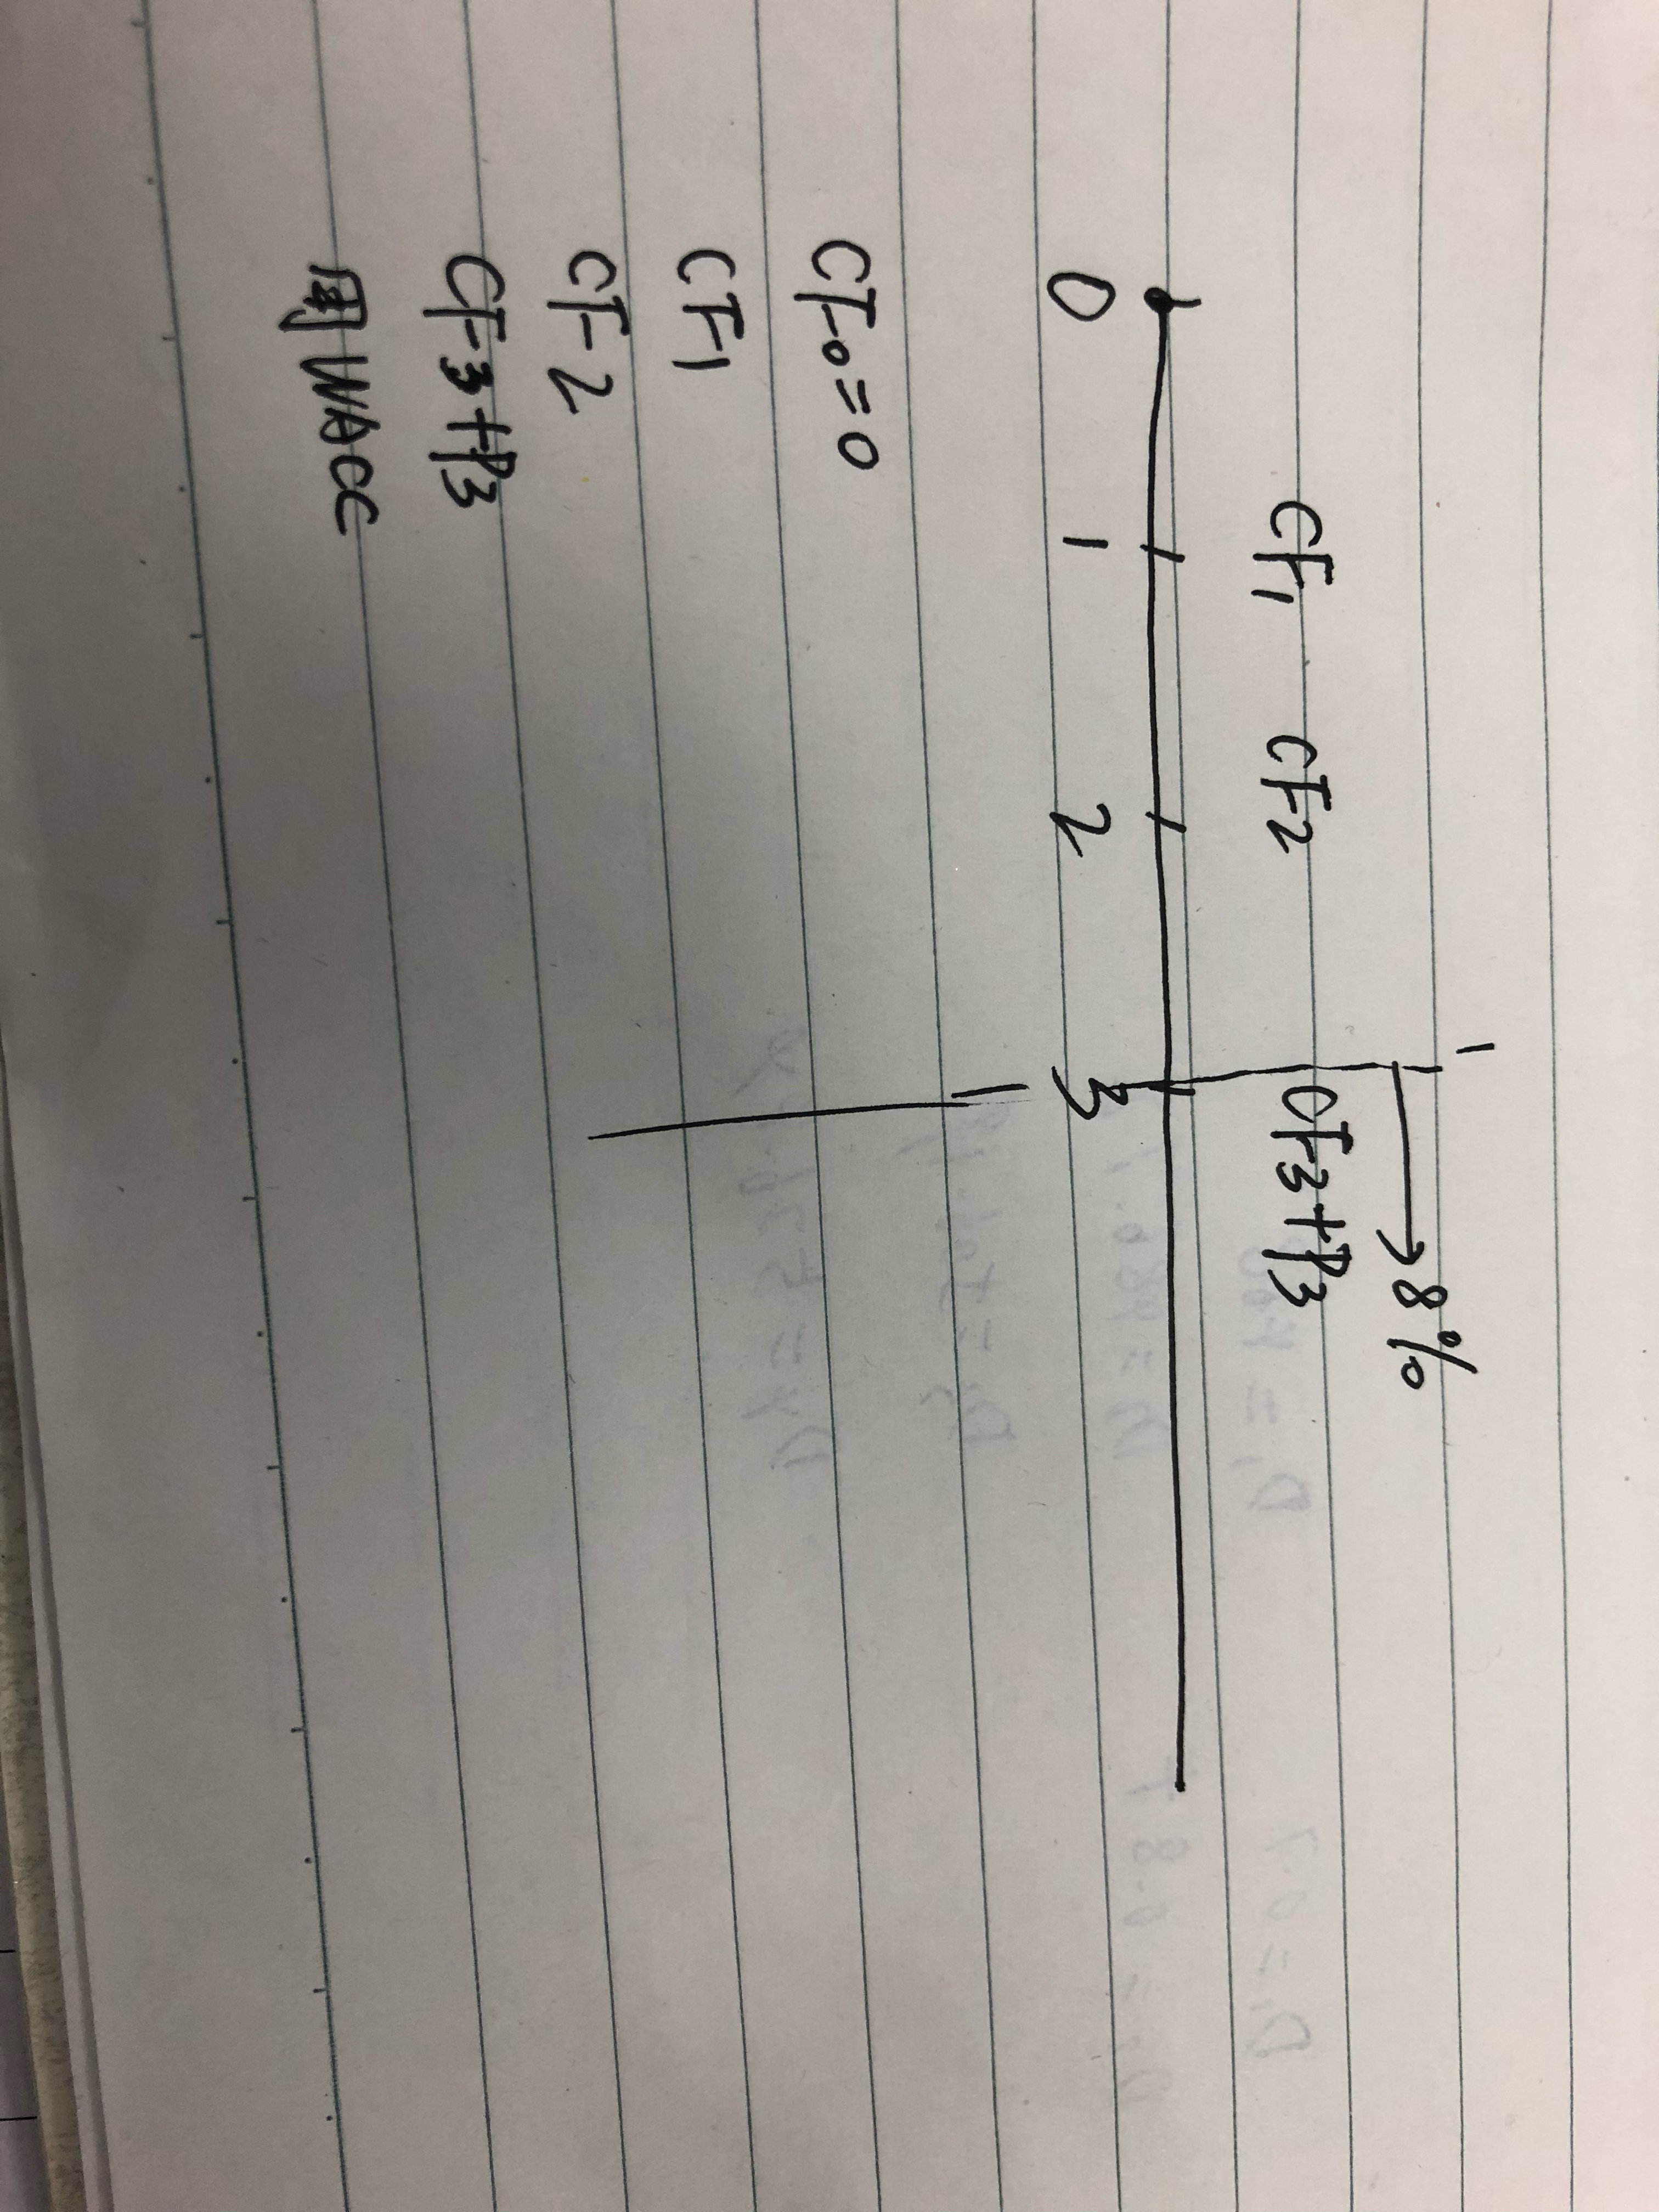 →8%
CF1 CF2 CF3+P3
0 1 2 3
CF0=0
CF1
CF2
CF3+P3
用WACC